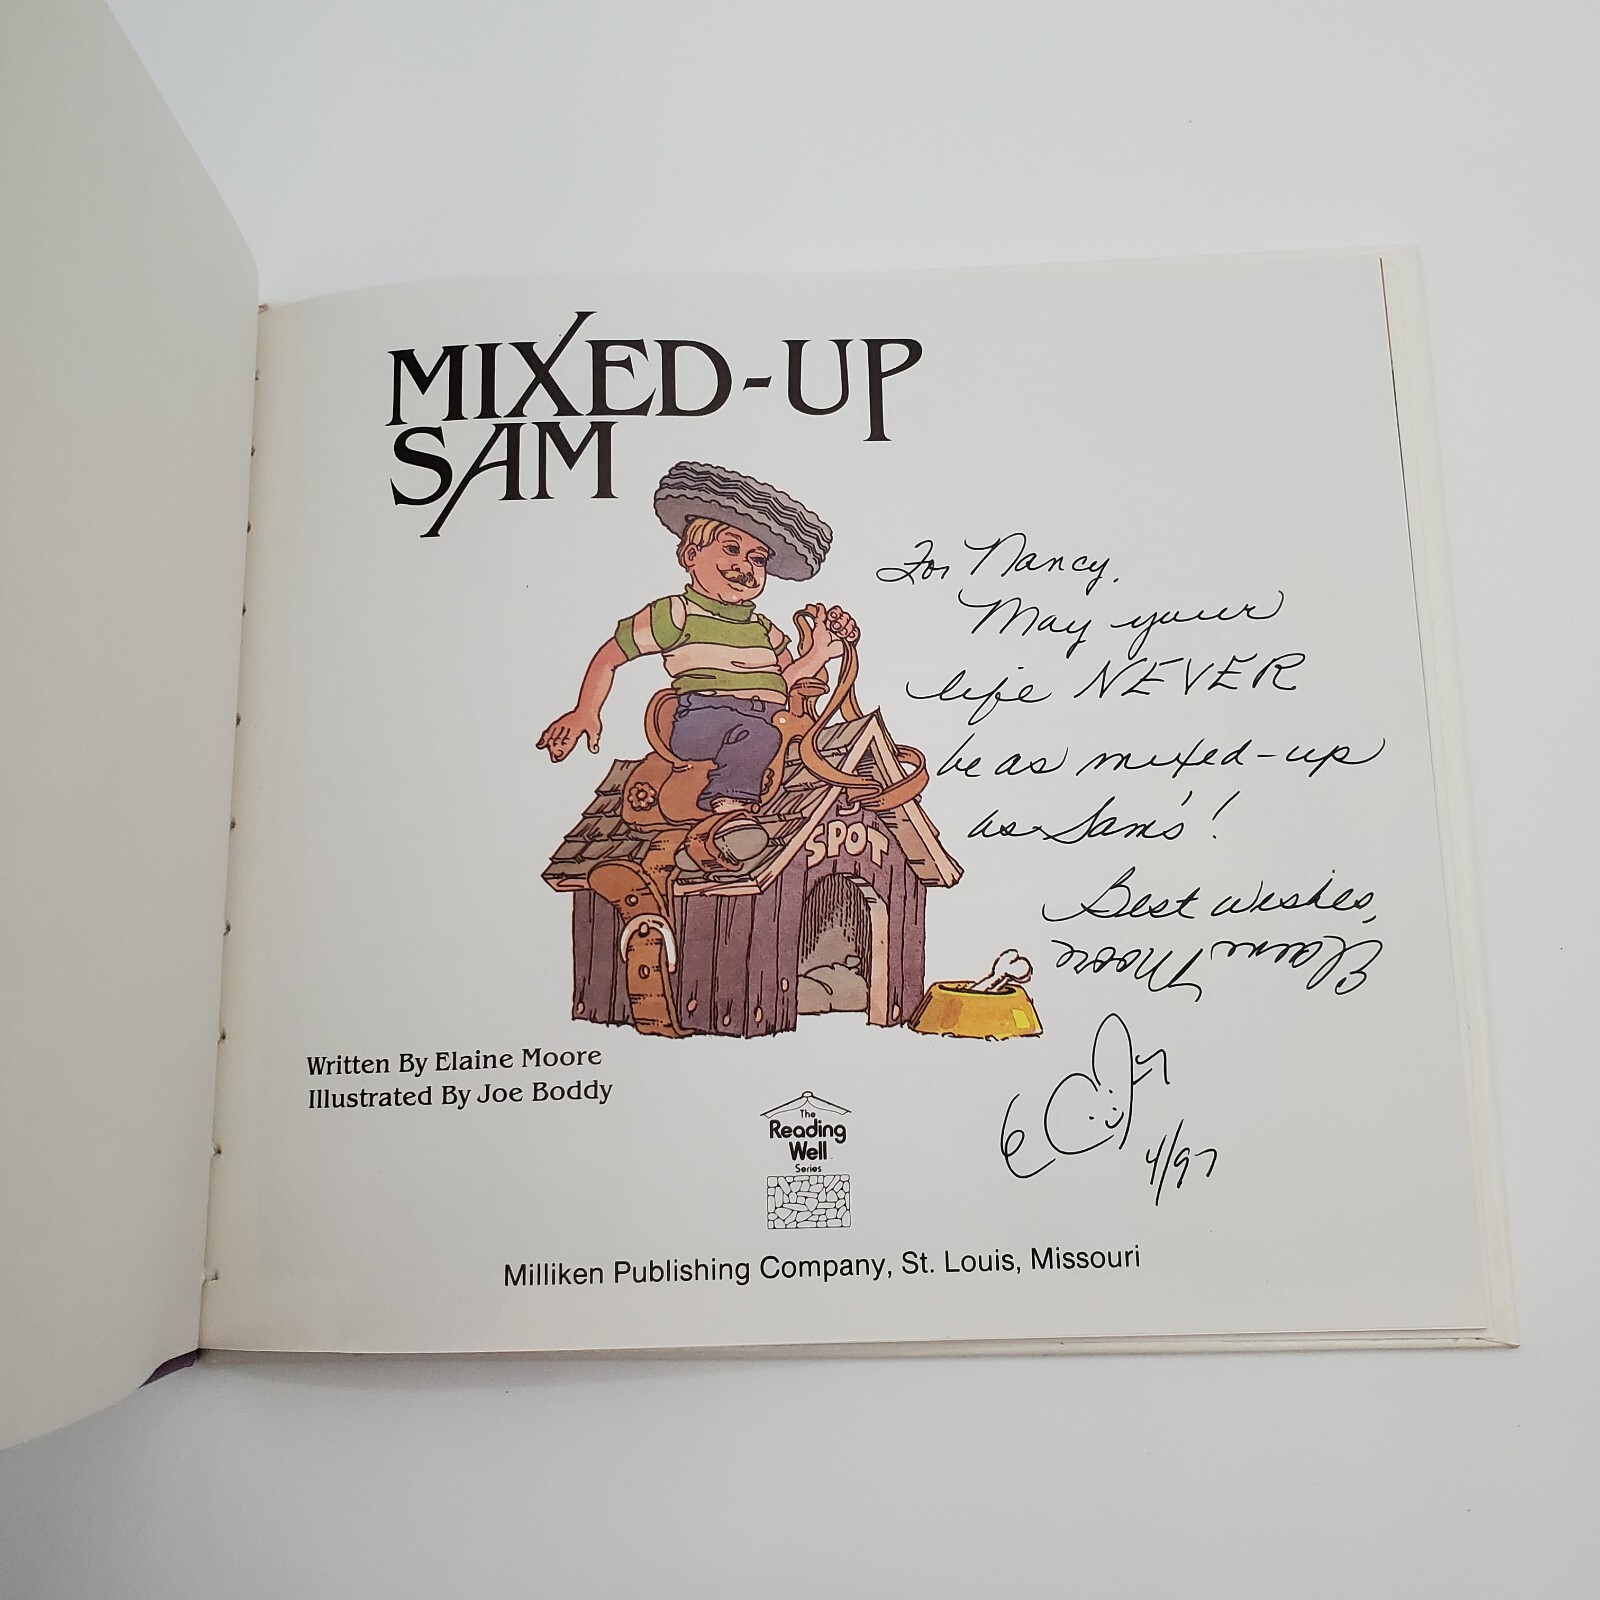 MIXED-UP
SAM
For Nancy,
May your
life NEVER
be as mixed-up
as Sam's!
Best wishes,
Elaine Moore
4/97
SPOT
Written By Elaine Moore
Illustrated By Joe Boddy
The
Reading
Well
Series
Milliken Publishing Company, St. Louis, Missouri